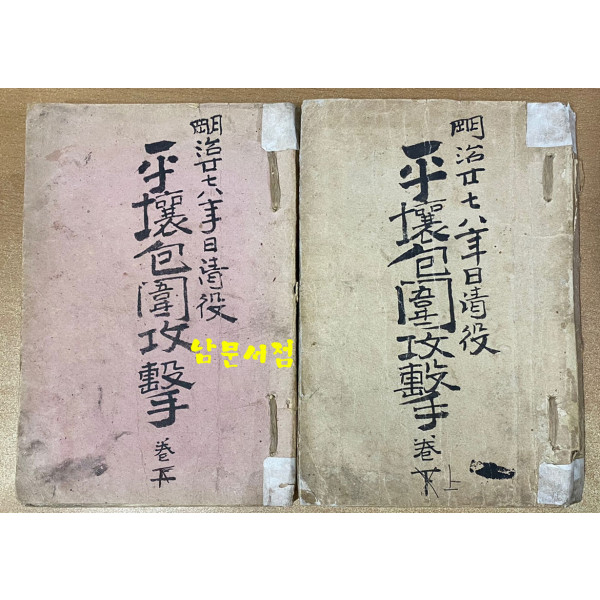 明治廿七八年日清役
平壤包圍攻擊
卷上
明治廿七八年日清役
平壤包圍攻擊
卷下
남문서점